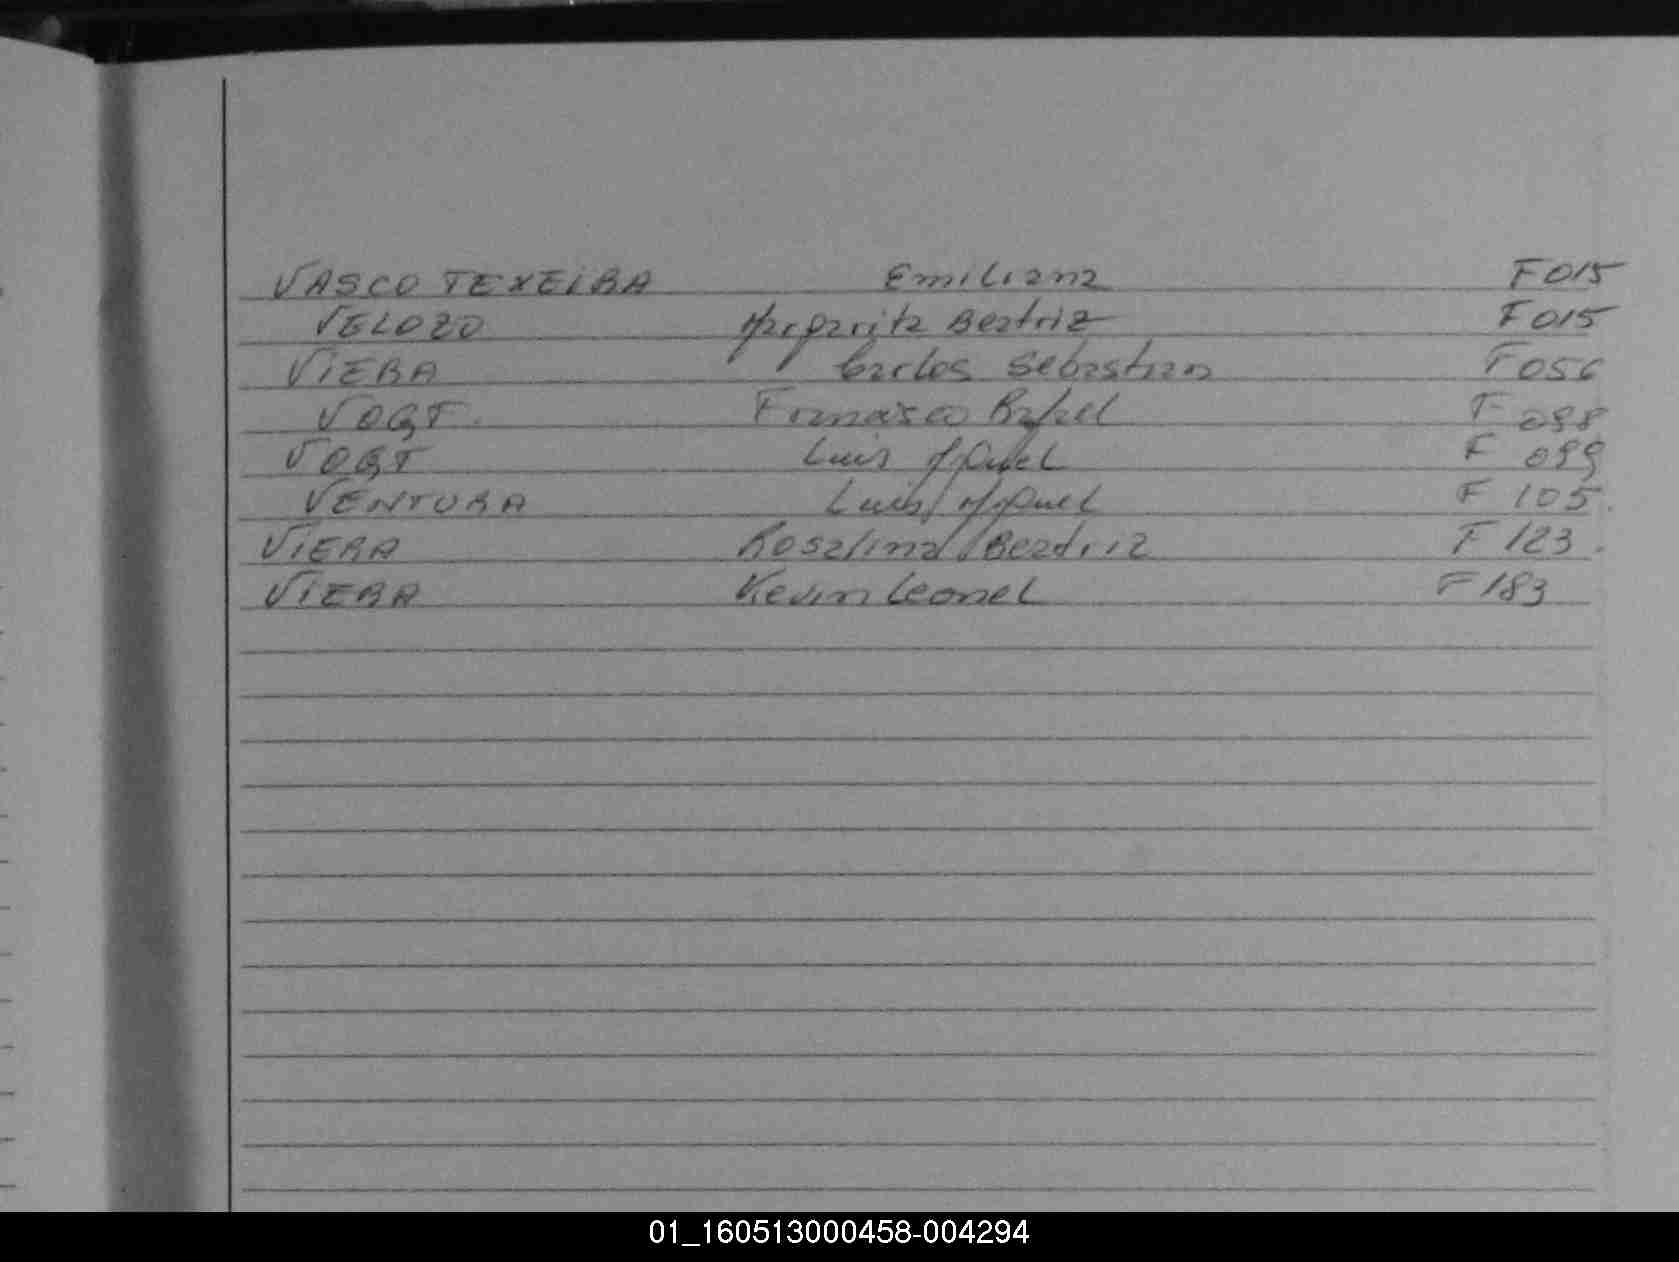 VASCO TEXEIRA Emiliana F 015
VELOZO Margarita Beatriz F 015
VIERA Carlos Sebastian F 056
VOGT. Francisco Rafael F 098
VOGT Luis Miguel F 099
VENTURA Luis Miguel F 105.
VIERA Rosalina Beatriz F 123.
VIERA Kevin Leonel F 183
01_160513000458-004294